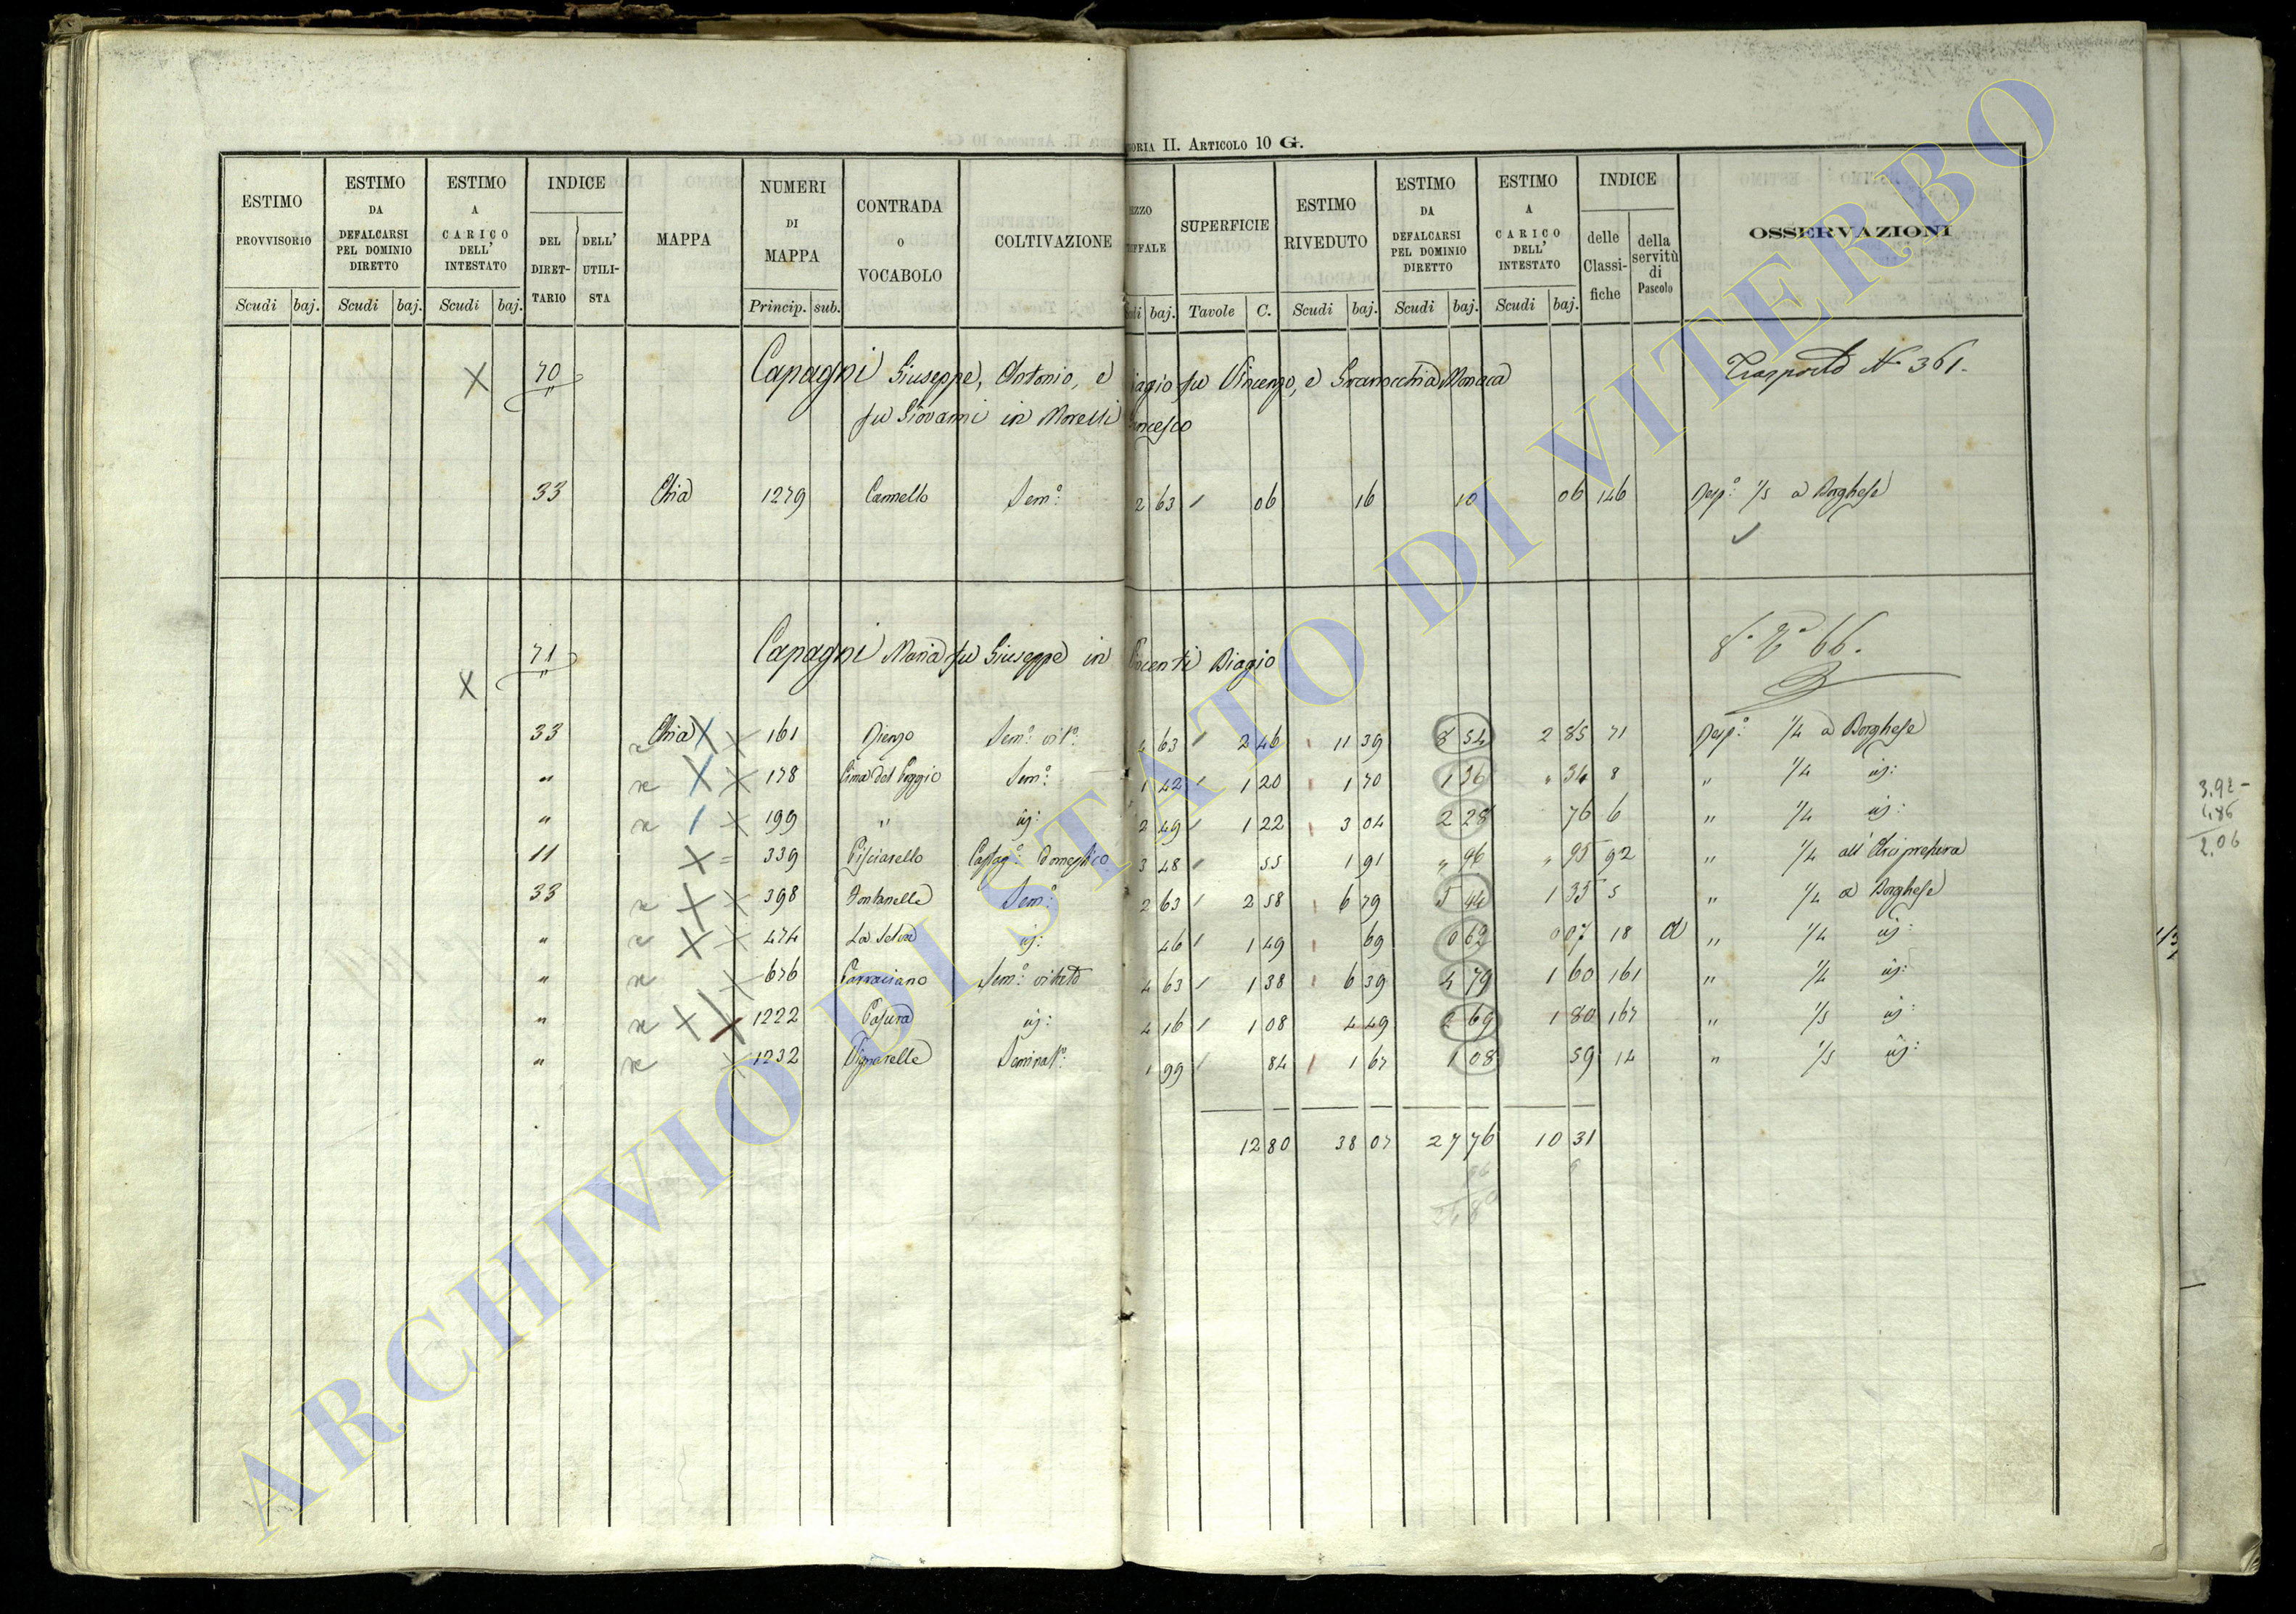 ORIA II. ARTICOLO 10 G.
ESTIMO PROVVISORIO Scudi baj. ESTIMO DA DEFALCARSI PEL DOMINIO DIRETTO Scudi baj. ESTIMO A CARICO DELL' INTESTATO Scudi baj. INDICE DEL DIRETTARIO DELL' UTILISTA MAPPA NUMERI DI MAPPA Princip. sub. CONTRADA O VOCABOLO COLTIVAZIONE EZZO IFFALE baj. SUPERFICIE Tavole C. ESTIMO RIVEDUTO Scudi baj. ESTIMO DA DEFALCARSI PEL DOMINIO DIRETTO Scudi baj. ESTIMO A CARICO DELL' INTESTATO Scudi baj. INDICE delle Classifiche della servitù di Pascolo OSSERVAZIONI
X 70 Capagni Giuseppe, Antonio, e iagio fu Vincenzo, e Monaca Trasporto N. 361.
fu Giovanni in Morelli ancesco
33 Chia 1279 Cannello Sem.º 2 63 / 06 16 10 06 146 Resp.º 1/5 a Borghese
71 Capagni Maria fu Giuseppe in Biagio 66.
X
33 Chia X X 161 Sem.º vit.º 4 63 / 2 46 11 39 8 54 2 85 71 Resp.º 1/4 a Borghese
" X X 178 Cima del Poggio Sem.º 1 42 / 1 20 1 70 1 36 " 34 8 " 1/4 id:
" / X 199 " id: 2 49 / 1 22 3 04 2 28 76 6 " 1/4 id:
11 X = 339 Pisciarello Castag.º domestico 3 48 / 55 1 91 " 96 " 95 92 " 1/4 all' Arcipretura
33 X X 398 Fontanelle Sem.º 2 63 / 2 58 6 79 5 44 1 35 5 " 1/4 a Borghese
" X X 474 La Selva id: 46 / 1 49 69 0 62 0 07 18 a " 1/4 id:
" X 676 Carraciano Sem.º vitato 4 63 / 1 38 6 39 4 79 1 60 161 " 1/4 id:
" X X 1222 id: 4 16 / 1 08 4 49 2 69 1 80 167 " 1/5 id:
" X 1232 Vignarelle Seminat.º 1 99 / 84 1 67 1 08 59 14 " 1/5 id:
12 80 38 07 27 76 10 31
3.92 -
1.86
2.06
ARCHIVIO DI STATO DI VITERBO